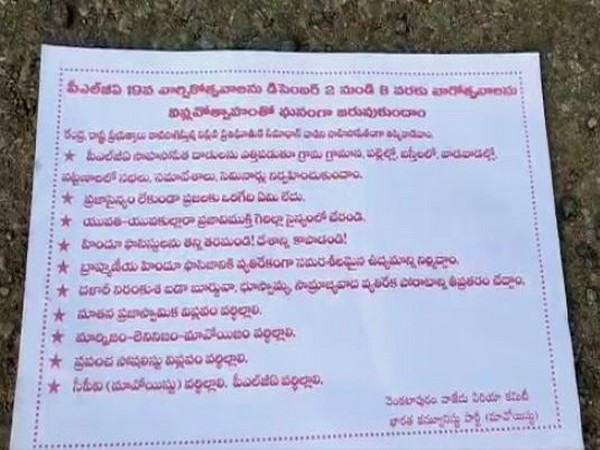 పీఎల్‌జీఏ 19వ వార్షికోత్సవాలను డిసెంబర్ 2 నుండి 8 వరకు వారోత్సవాలను
విప్లవోత్సాహంతో ఘనంగా జరుపుకుందాం
కేంద్ర, రాష్ట్ర ప్రభుత్వాలు
★ పీఎల్‌జీఏ సాహసోపేత దాడులను ఎత్తిపడుతూ గ్రామ గ్రామాన, పల్లెల్లో, బస్తీలలో, వాడవాడల్లో,
పట్టణాలలో సభలు, సమావేశాలు, సెమినార్లు నిర్వహించుకుందాం.
★ ప్రజాసైన్యం లేకుండా ప్రజలకు ఒరిగేది ఏమి లేదు.
★ యువతి-యువకుల్లారా ప్రజావిముక్తి గెరిల్లా సైన్యంలో చేరండి.
★ హిందూ ఫాసిస్టులను తన్ని తరమండి! దేశాన్ని కాపాడండి!
★ బ్రాహ్మణీయ హిందూ ఫాసిజానికి వ్యతిరేకంగా సమరశీలమైన ఉద్యమాన్ని నిర్మిద్దాం.
★ దళారీ నిరంకుశ బడా బూర్జువా, భూస్వామ్య, సామ్రాజ్యవాద వ్యతిరేక పోరాటాన్ని తీవ్రతరం చేద్దాం.
★ నూతన ప్రజాస్వామిక విప్లవం వర్ధిల్లాలి.
★ మార్క్సిజం-లెనినిజం-మావోయిజం వర్ధిల్లాలి.
★ ప్రపంచ సోషలిస్టు విప్లవం వర్ధిల్లాలి.
★ సీపీఐ (మావోయిస్టు) వర్ధిల్లాలి. పీఎల్‌జీఏ వర్ధిల్లాలి.
వెంకటాపురం వాజేడు ఏరియా కమిటీ
భారత కమ్యూనిస్టు పార్టీ (మావోయిస్టు)